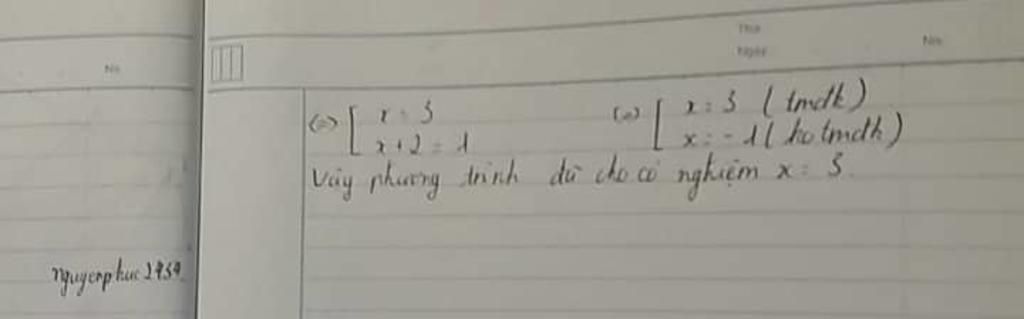 No.
Thứ
Ngày
No.
(=) [ x = 3 (=) [ x = 3 (tmđk)
x + 2 = 1 x = -1 (ko tmđk)
Vậy phương trình đã cho có nghiệm x = 3.
nguyenphuc2959